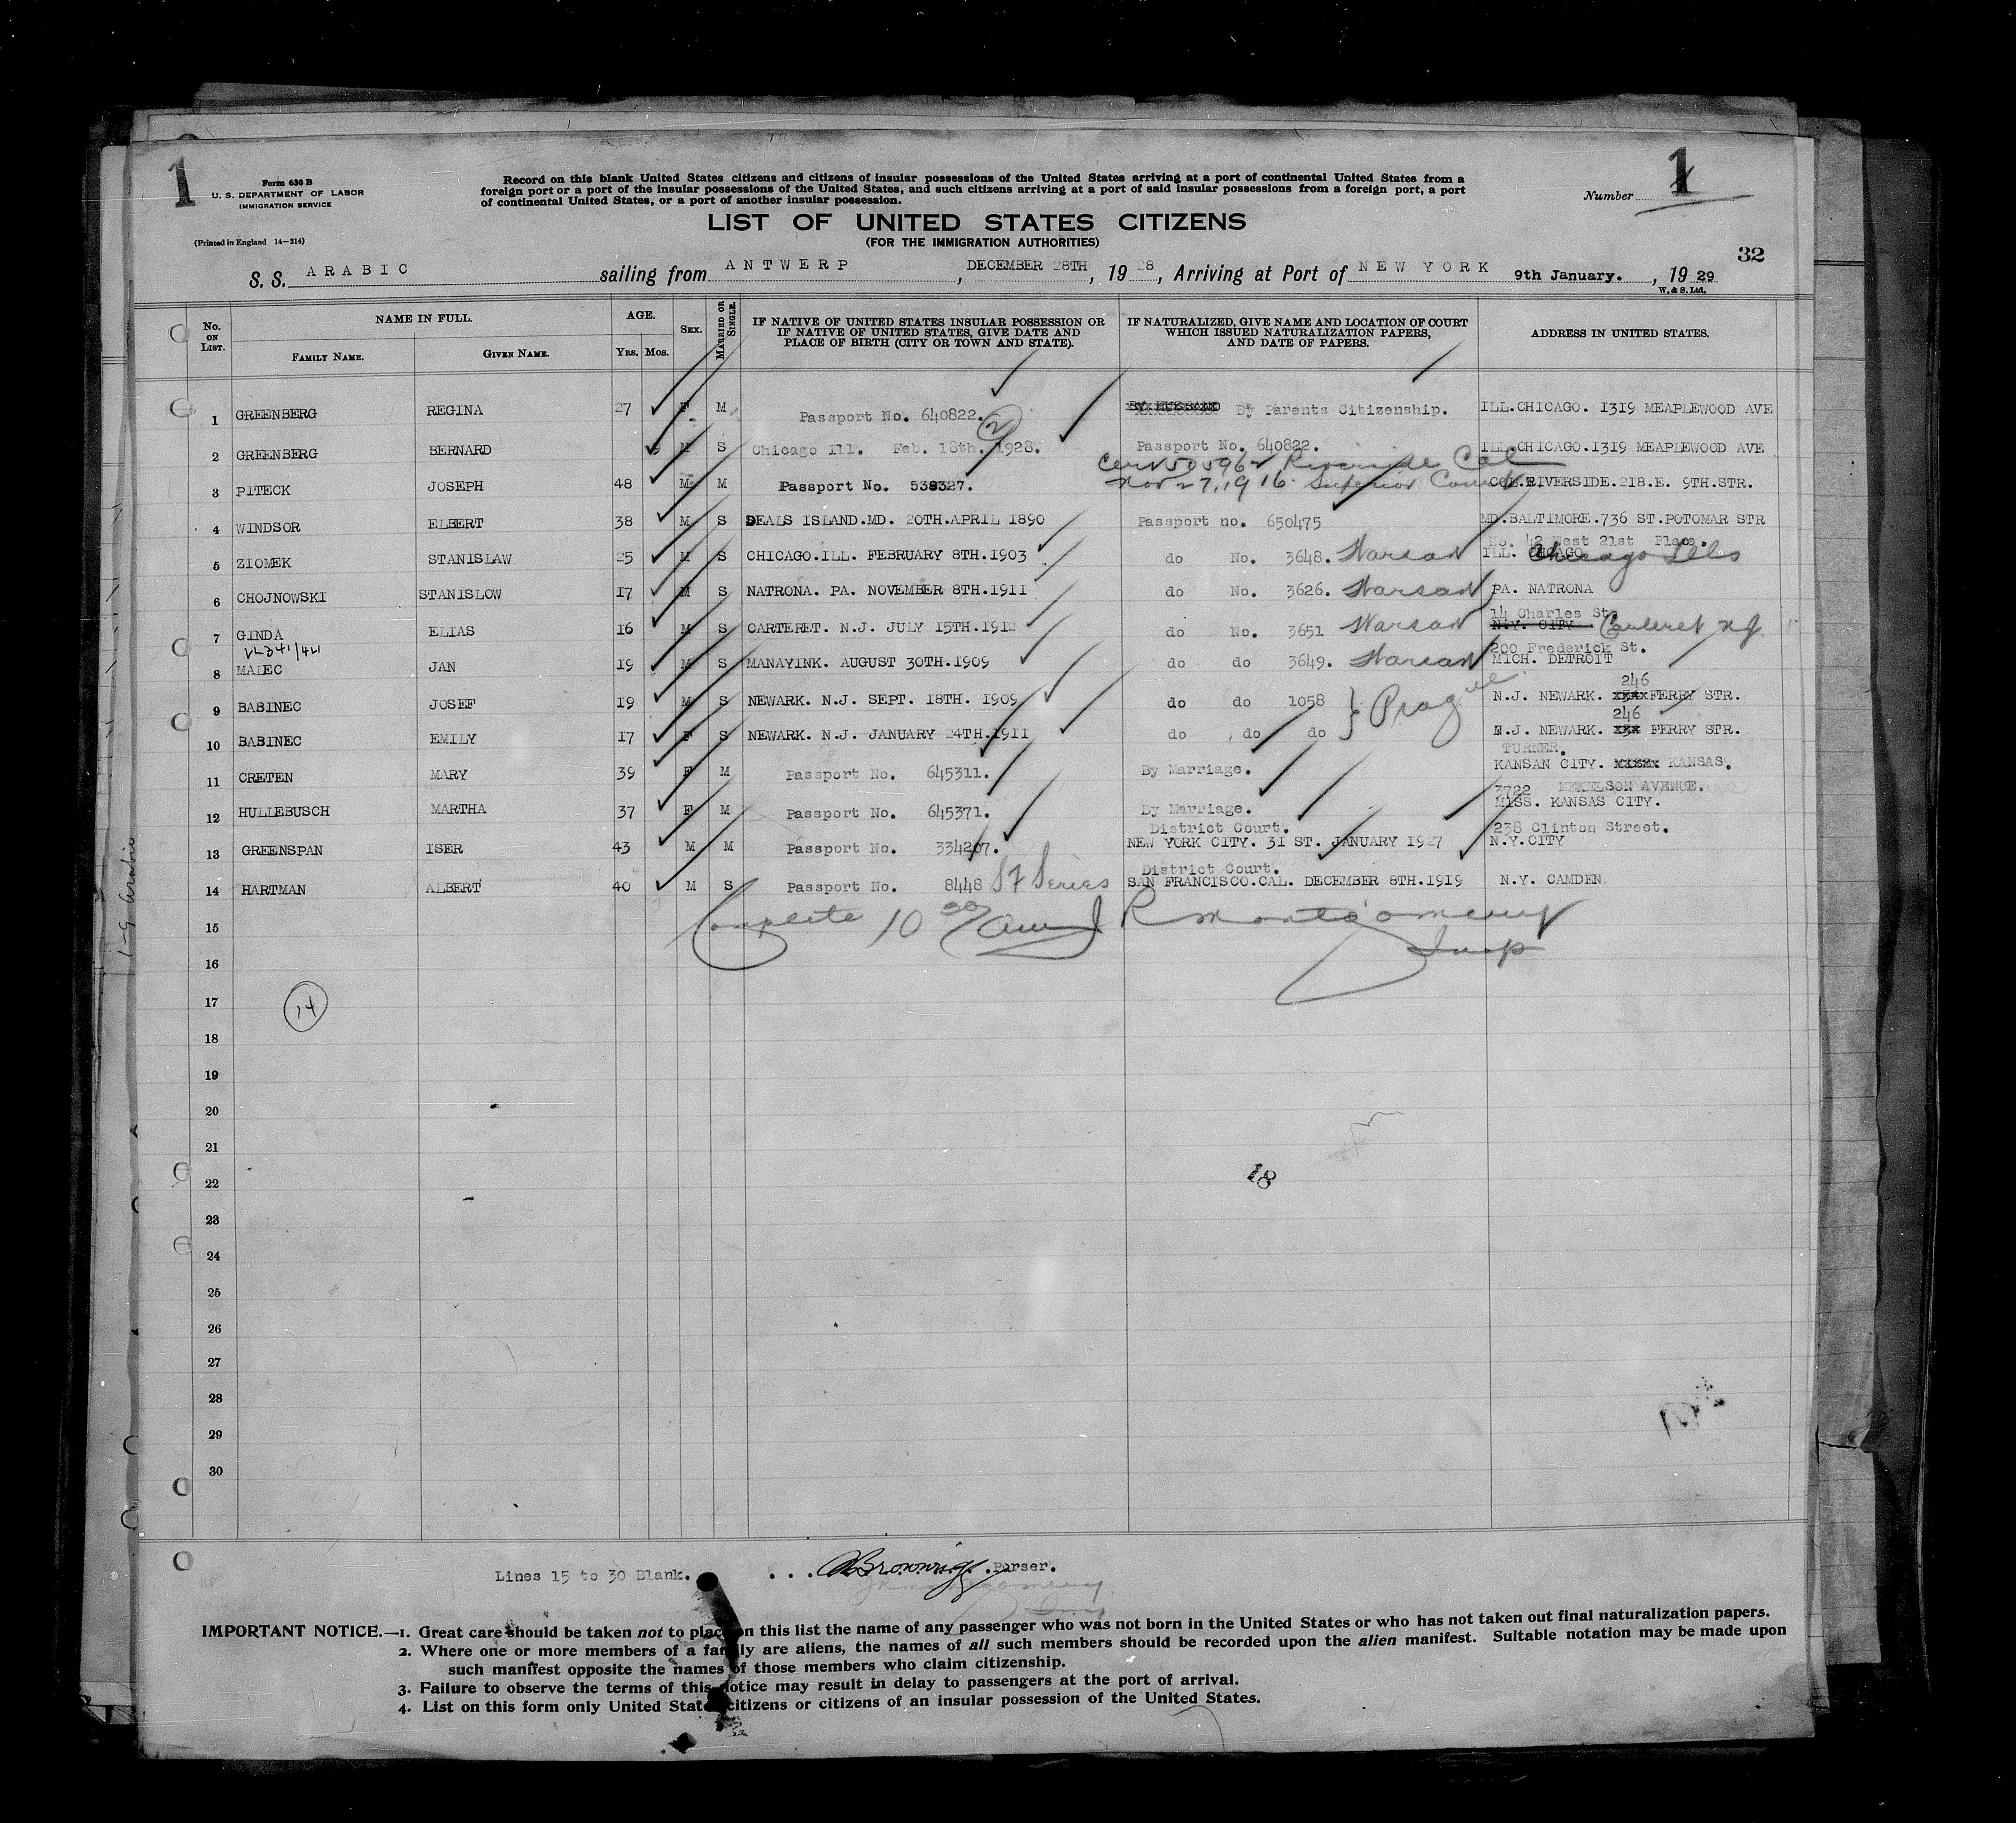 1
Form 630 B
U. S. DEPARTMENT OF LABOR
IMMIGRATION SERVICE
(Printed in England 14—214)
Record on this blank United States citizens and citizens of insular possessions of the United States arriving at a port of continental United States from a
foreign port or a port of the insular possessions of the United States, and such citizens arriving at a port of said insular possessions from a foreign port, a port
of continental United States, or a port of another insular possession.
LIST OF UNITED STATES CITIZENS
(FOR THE IMMIGRATION AUTHORITIES)
Number 1
32
S. S. ARABIC sailing from ANTWERP, DECEMBER 28TH, 19 28, Arriving at Port of NEW YORK 9th January., 19 29
W. & S. Ltd.
No. ON LIST. NAME IN FULL. FAMILY NAME. GIVEN NAME. AGE. Yrs. Mos. SEX. MARRIED OR SINGLE. IF NATIVE OF UNITED STATES INSULAR POSSESSION OR IF NATIVE OF UNITED STATES, GIVE DATE AND PLACE OF BIRTH (CITY OR TOWN AND STATE). IF NATURALIZED, GIVE NAME AND LOCATION OF COURT WHICH ISSUED NATURALIZATION PAPERS, AND DATE OF PAPERS. ADDRESS IN UNITED STATES.
1 GREENBERG REGINA 27 F M Passport No. 640822. BY HUSBAND By Parents Citizenship. ILL.CHICAGO. 1319 MEAPLEWOOD AVE
2
2 GREENBERG BERNARD 9 M S Chicago Ill. Feb. 18th. 1928. Passport No. 640822. ILL.CHICAGO.1319 MEAPLEWOOD AVE
Riverside Cal
3 PITECK JOSEPH 48 M M Passport No. 538327. Nov 27, 1916. Superior Court RIVERSIDE.218.E. 9TH.STR.
4 WINDSOR ELBERT 38 M S DEALS ISLAND.MD. 20TH.APRIL 1890 Passport no. 650475 MD.BALTIMORE.736 ST.POTOMAR STR
No. 42 West 21st Place.
5 ZIOMEK STANISLAW 25 M S CHICAGO.ILL. FEBRUARY 8TH.1903 do No. 3648. Warsaw ILL. CHICAGO Chicago Ills
6 CHOJNOWSKI STANISLOW 17 M S NATRONA. PA. NOVEMBER 8TH.1911 do No. 3626. Warsaw PA. NATRONA
14 Charles St.
7 GINDA ELIAS 16 M S CARTERET. N.J. JULY 15TH.1912 do No. 3651 Warsaw N.Y. CITY Carteret NJ
200 Frederick St.
8 MALEC JAN 19 M S MANAYINK. AUGUST 30TH.1909 do do 3649. Warsaw MICH. DETROIT
246
9 BABINEC JOSEF 19 M S NEWARK. N.J. SEPT. 18TH. 1909 do do 1058 Prague N.J. NEWARK. xxxx FERRY STR.
246
10 BABINEC EMILY 17 F S NEWARK. N.J. JANUARY 24TH.1911 do do do N.J. NEWARK. xxx FERRY STR.
TURNER.
11 CRETEN MARY 39 F M Passport No. 645311. By Marriage. KANSAN CITY. KANSAS.
3722 AVENUE.
12 HULLEBUSCH MARTHA 37 F M Passport No. 645371. By Marriage. MISS. KANSAS CITY.
District Court. 238 Clinton Street.
13 GREENSPAN ISER 43 M M Passport No. 334207. NEW YORK CITY. 31 ST. JANUARY 1927 N.Y.CITY
District Court.
14 HARTMAN ALBERT 40 M S Passport No. 8448 SF Series SAN FRANCISCO.CAL. DECEMBER 8TH.1919 N.Y. CAMDEN
15 Complete 10 30 am R Montgomery
Insp
16
17 14
18
19
20
21
22 18
23
24
25
26
27
28
29
30
Lines 15 to 30 Blank. ... Browning. Purser.
IMPORTANT NOTICE.—1. Great care should be taken not to place on this list the name of any passenger who was not born in the United States or who has not taken out final naturalization papers.
2. Where one or more members of a family are aliens, the names of all such members should be recorded upon the alien manifest. Suitable notation may be made upon
such manifest opposite the names of those members who claim citizenship.
3. Failure to observe the terms of this notice may result in delay to passengers at the port of arrival.
4. List on this form only United States citizens or citizens of an insular possession of the United States.